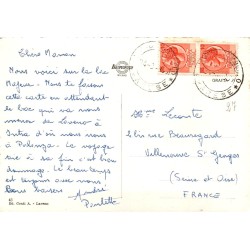 Chère Maman
Nous voici sur le lac
Majeur. Nous te faisons
cette carte en attendant
le bac qui va nous
mener de Laveno à
Intra d'où nous irons
à Pallanza. Le voyage
vire à sa fin c'est bien
dommage. Le beau temps
est toujours avec nous
Bons baisers
André
Paulette
Mme Lecomte
2 bis rue Beauregard
Villeneuve St Georges
(Seine et Oise)
FRANCE
37
Ed. Conti A. - Laveno